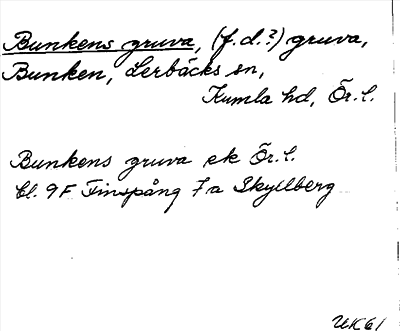 Bunkens gruva, (f.d.?) gruva,
Bunken, Lerbäcks sn,
Kumla hd, Ör. l.
Bunkens gruva ek Ör. l.
bl. 9F Finspång 7a Skyllberg
UK61